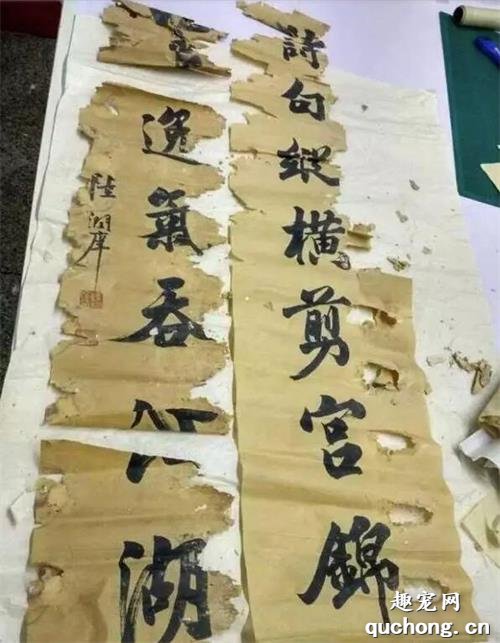 詩句縱橫剪宮錦
逸氣吞江湖
陸潤庠
趣宠网
quchong.cn